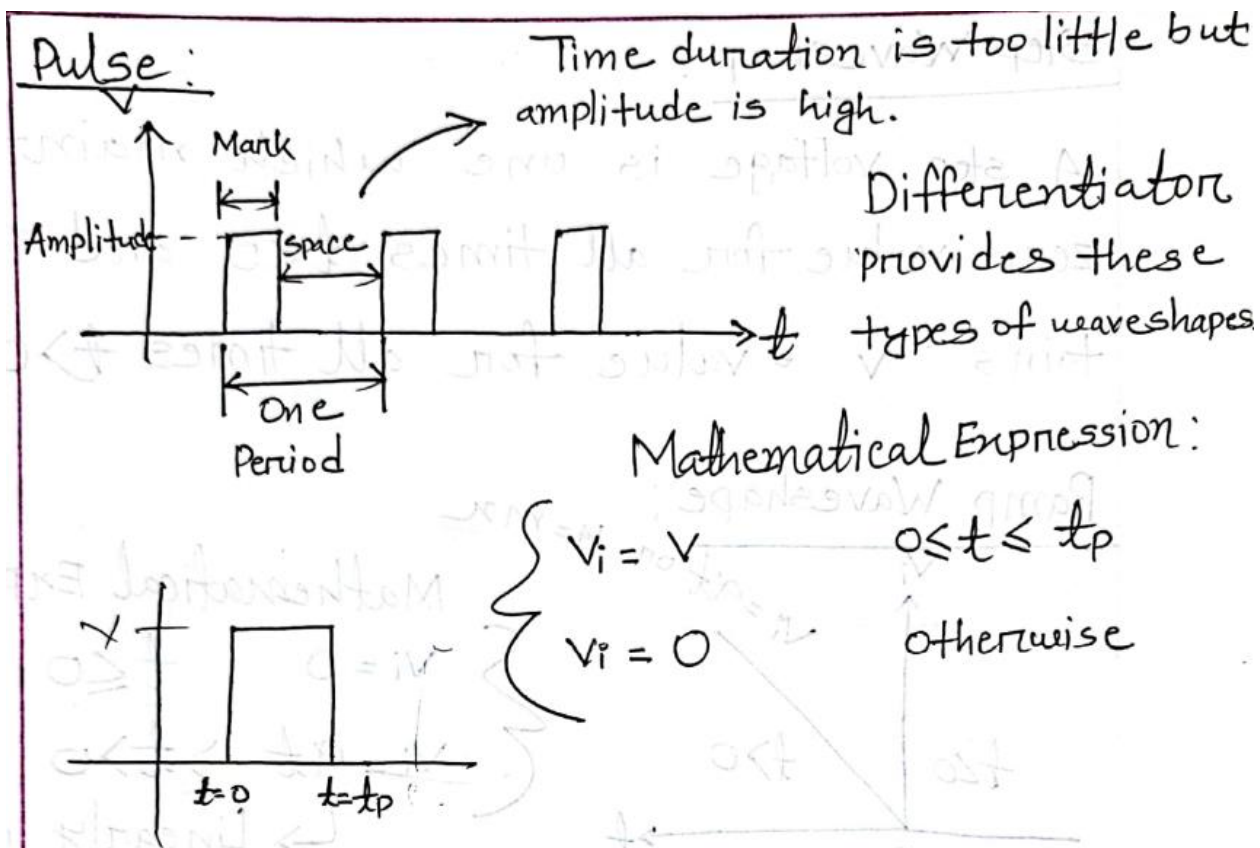 Pulse:
Time duration is too little but
amplitude is high.
Mark
Amplitude
space
Differentiator
provides these
types of waveshapes.
t
One
Period
Mathematical Expression:
Vi = V 0≤t≤ tp
Vi = 0 otherwise
V
t=0 t=tp